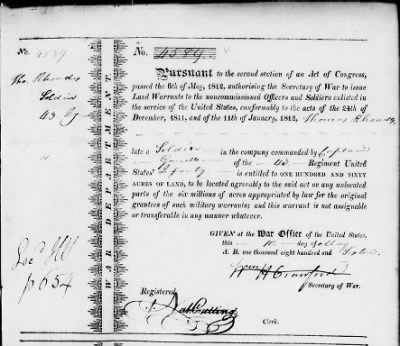 No. 4589
No. 4589.
Tho. Rhoades
Soldier
43 Rg
WAR DEPARTMENT.
PURSUANT to the second section of an Act of Congress,
passed the 6th of May, 1812, authorising the Secretary of War to issue
Land Warrants to the noncommissioned Officers and Soldiers enlisted in
the service of the United States, conformably to the acts of the 24th of
December, 1811, and of the 11th of January, 1812, Thomas Rhoades
late a Soldier in the company commanded by Captain
of the 43 Regiment United
States' Infantry is entitled to ONE HUNDRED AND SIXTY
ACRES OF LAND, to be located agreeably to the said act on any unlocated
part of the six millions of acres appropriated by law for the original
grantees of such military warrants; and this warrant is not assignable
or transferable in any manner whatever.
GIVEN at the War Office of the United States,
this 10 day of May
A. D. one thousand eight hundred and Sixteen
Wm H Crawford
Secretary of War.
p 654
Registered
Nat Cutting
Clerk.